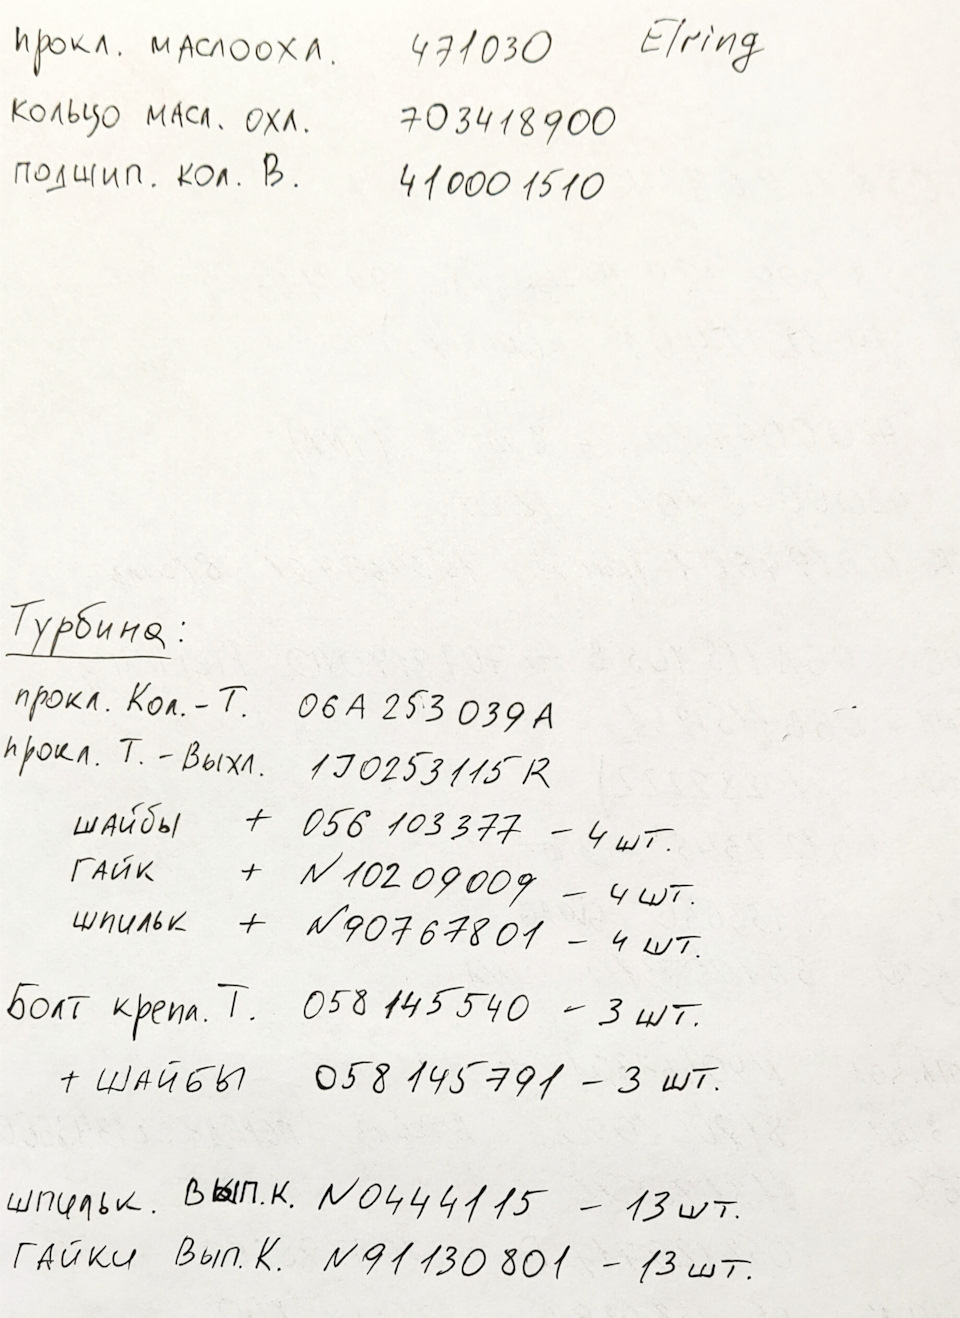 прокл. маслоохл. 471030 Elring
кольцо масл. охл. 703418900
подшип. кол. В. 410001510
Турбина:
прокл. Кол.-Т. 06A 253 039A
прокл. Т.-Выхл. 1J0253115R
шайбы + 056 103377 - 4 шт.
гайк + N10209009 - 4 шт.
шпильк + N90767801 - 4 шт.
Болт крепл. Т. 058 145 540 - 3 шт.
+ шайбы 058 145791 - 3 шт.
шпильк. Вып.к. N0444115 - 13 шт.
гайки Вып.К. N91130801 - 13 шт.